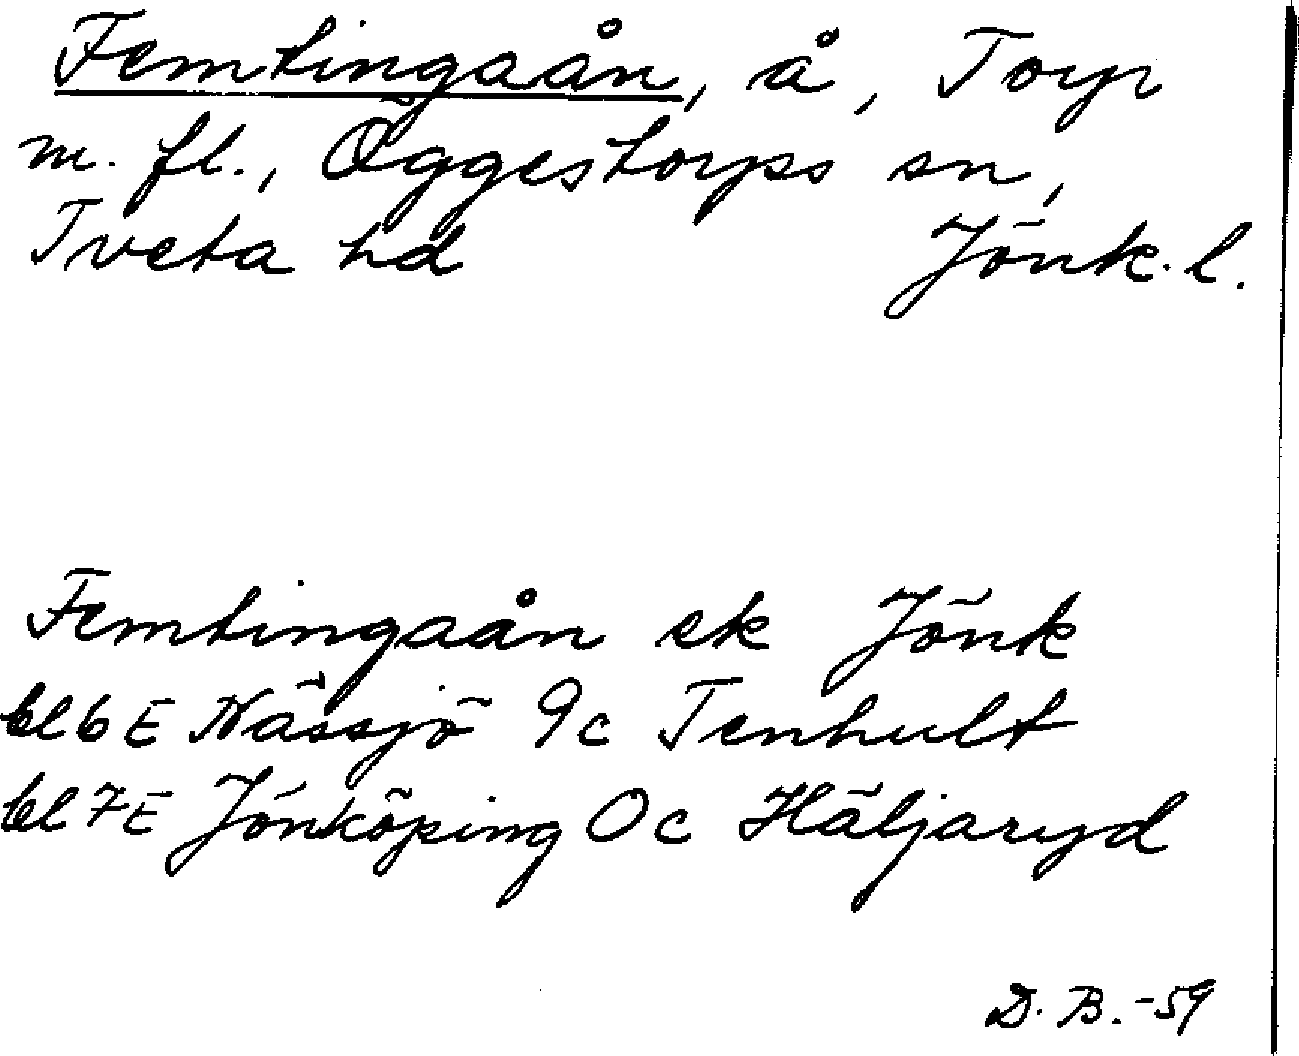 Femtingaån, å, Torp
m. fl., Öggestorps sn,
Tveta hd Jönk. l.
Femtingaån ek Jönk
bl 6 E Nässjö 9c Tenhult
bl 7 E Jönköping 0c Häljaryd
D. B. -59